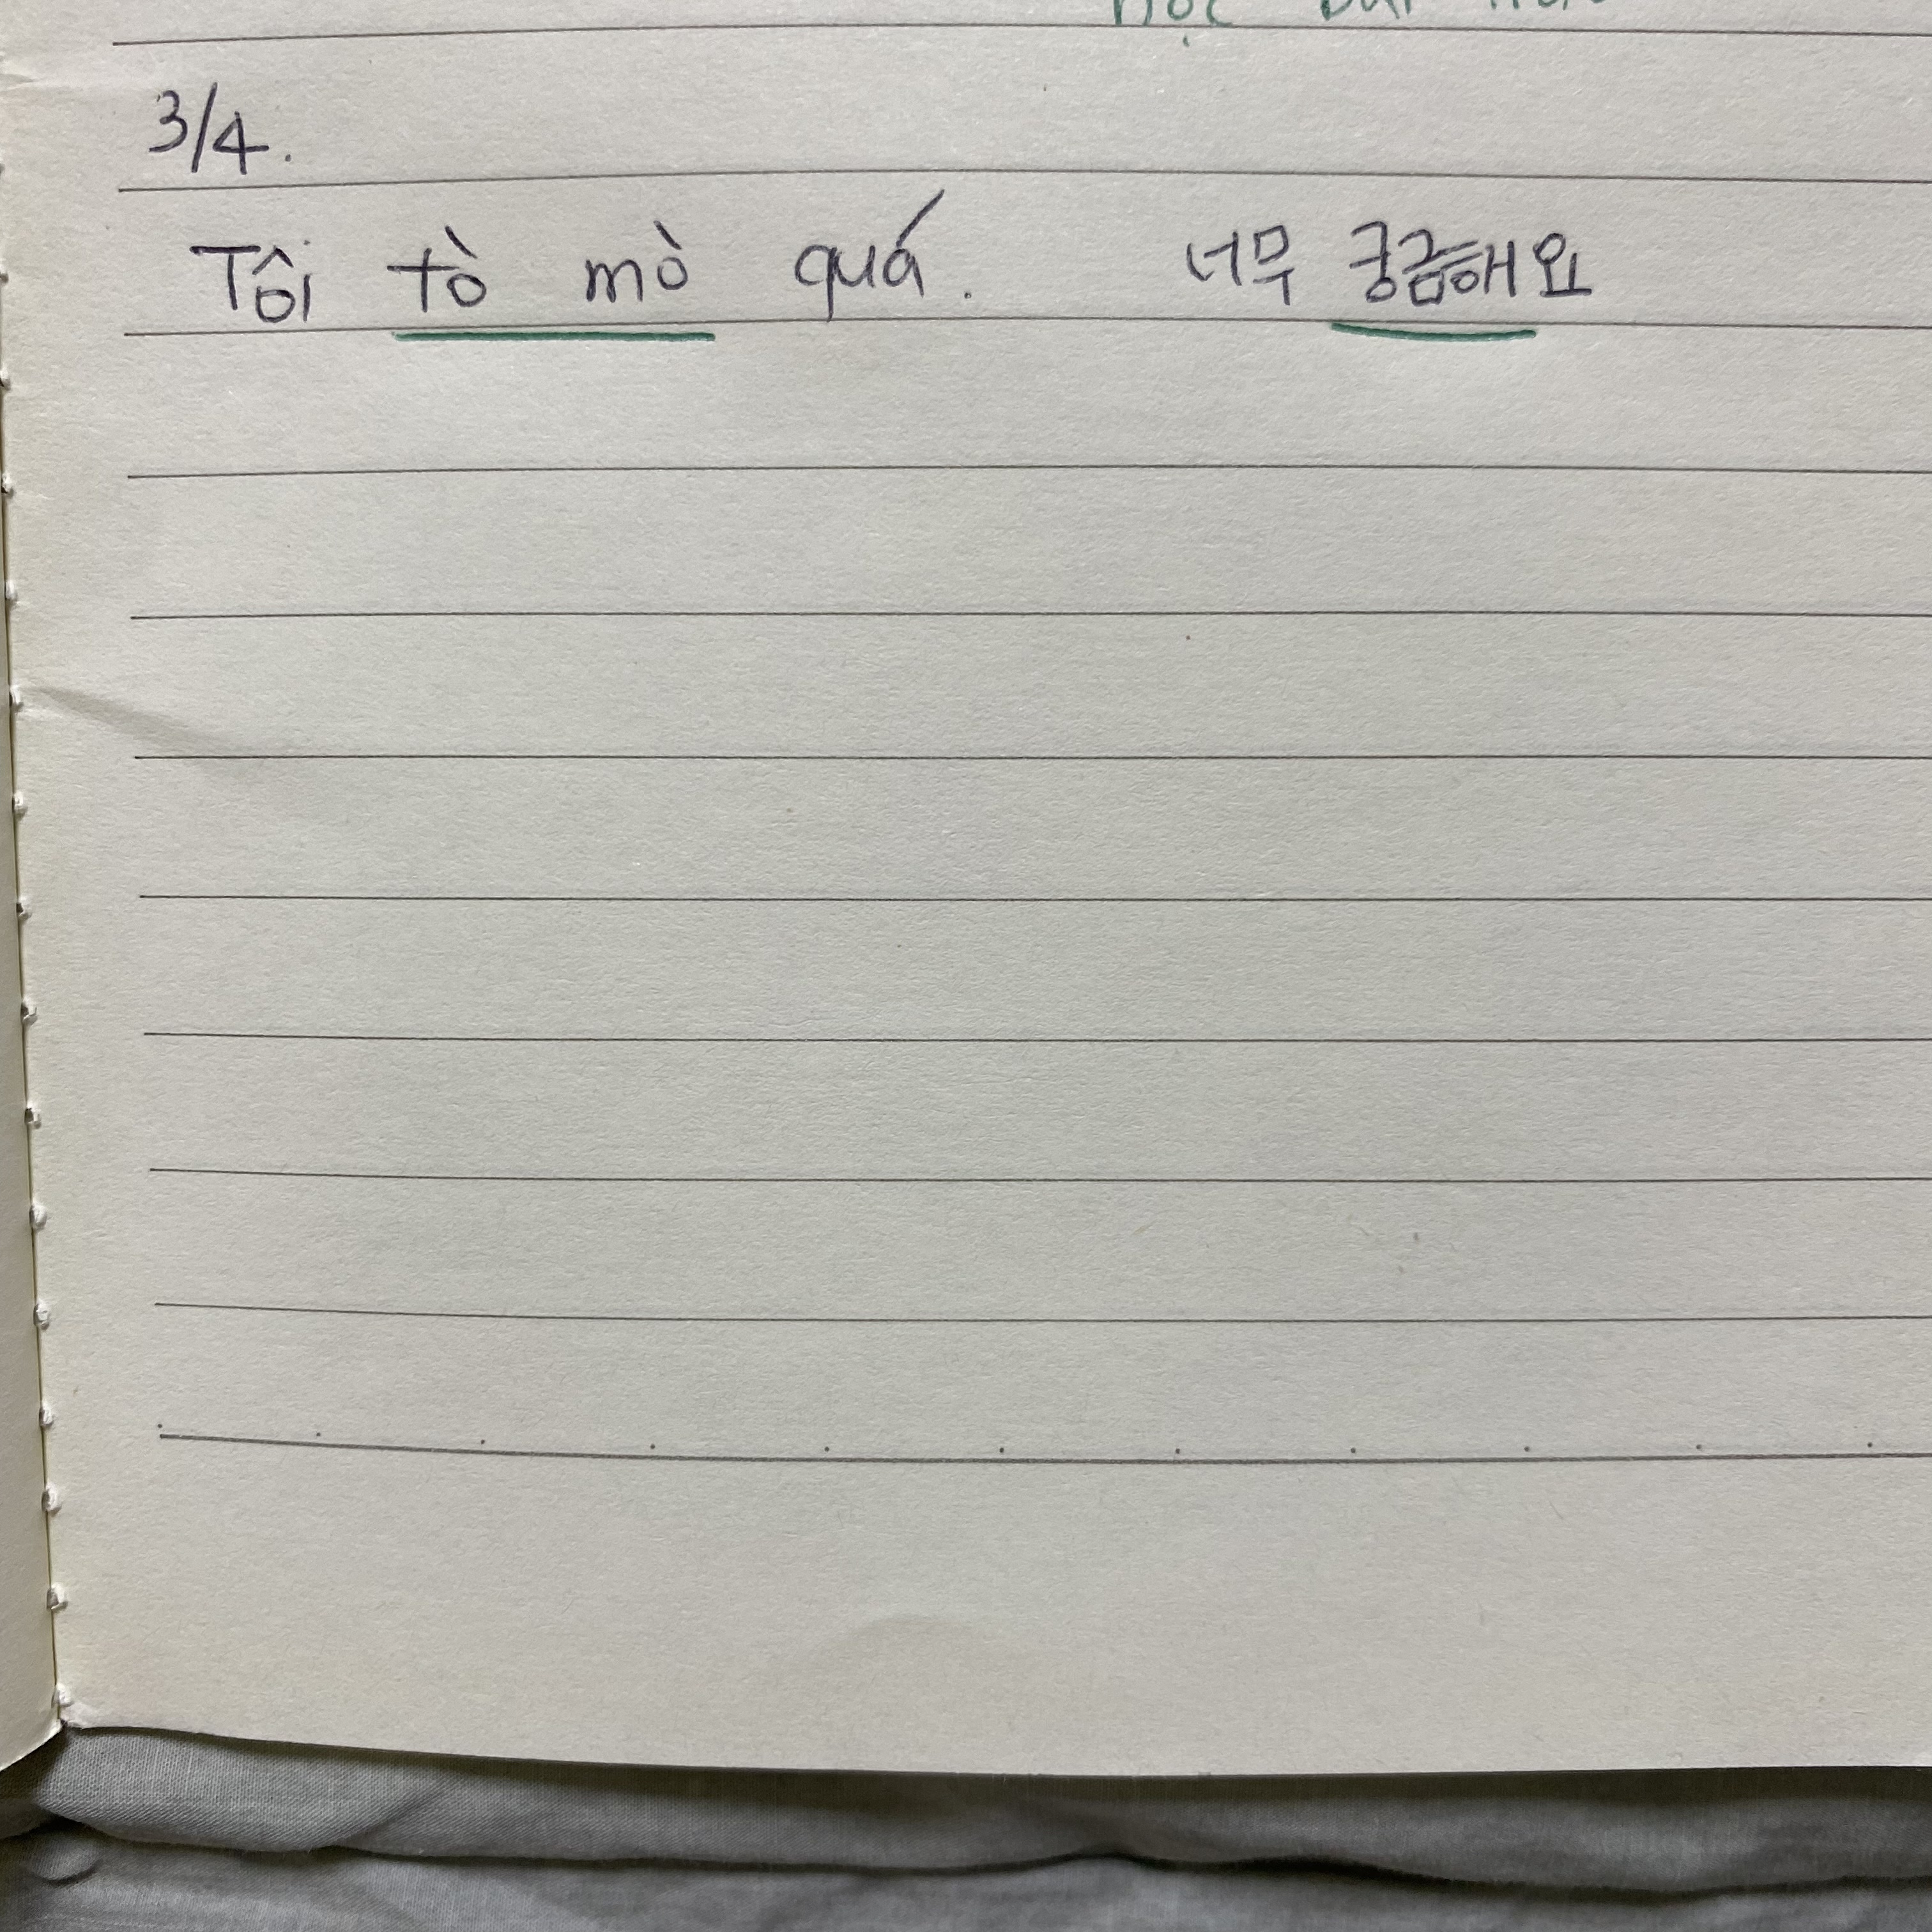 3/4.
Tôi tò mò quá. 너무 궁금해요